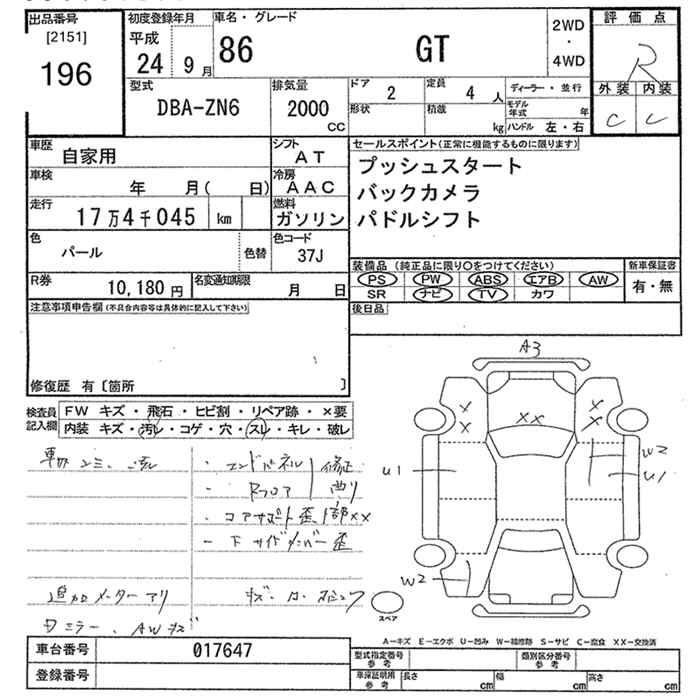 出品番号
[2151]
196
初度登録年月
平成
24 9月
車名・グレード
86 GT
2WD
・
4WD
評価点
R
外装 内装
C C
型式
DBA-ZN6
排気量
2000
CC
ドア
2
定員
4 人
形状
積載
kg
ディーラー・並行
モデル年式 年
ハンドル 左・右
車歴
自家用
シフト
AT
車検
年 月( 日)
冷房
AAC
走行
17万4千045 km
燃料
ガソリン
色
パール
色替
色コード
37J
R券
10,180 円
名変通知期限
月 日
セールスポイント(正常に機能するものに限ります)
プッシュスタート
バックカメラ
パドルシフト
装備品 (純正品に限り○をつけてください)
PS PW ABS エアB AW
SR ナビ TV カワ
新車保証書
有・無
後日品
注意事項申告欄(不具合内容等は具体的に記入して下さい)
修復歴 有〔箇所 〕
検査員
記入欄
FW キズ・飛石・ヒビ割・リペア跡・×要
内装 キズ・汚レ・コゲ・穴・スレ・キレ・破レ
・エンドパネル 修正
・Rフロア 凹り
・コアサポート歪
追加メーターアリ
ドミラー、AWキズ
A3
X X
X X
X X
U1
W2
U1
W2
スペア
A-キズ E-エクボ U-凹み W-補修跡 S-サビ C-腐食 XX-交換済
車台番号
017647
登録番号
型式指定番号
参考
類別区分番号
参考
車保証明用
参考
長さ cm
幅 cm
高さ cm